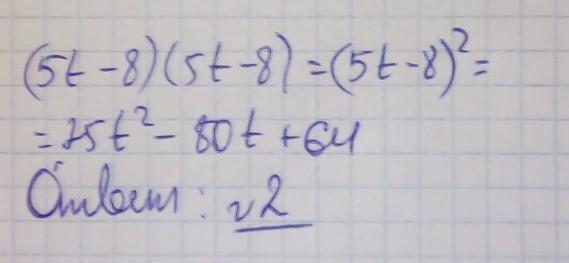 (5t-8)(5t-8)=(5t-8)²=
=25t²-80t+64
Ответ: v2